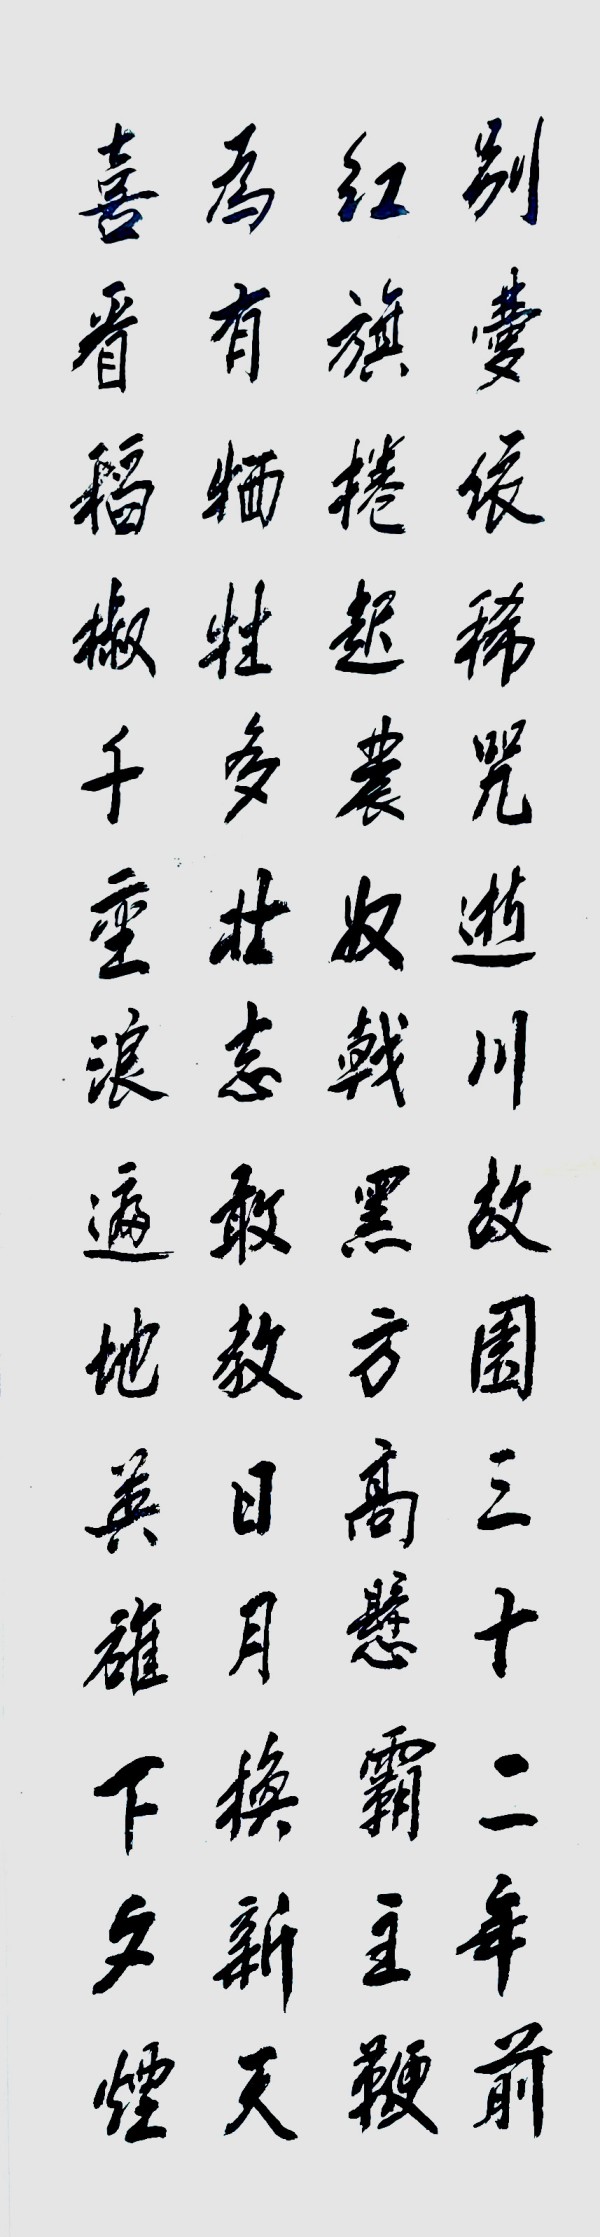 别夢依稀咒逝川故園三十二年前
紅旗捲起農奴戟黑方高懸霸主鞭
為有牺牲多壮志敢教日月換新天
喜看稻椒千重浪遍地英雄下夕煙